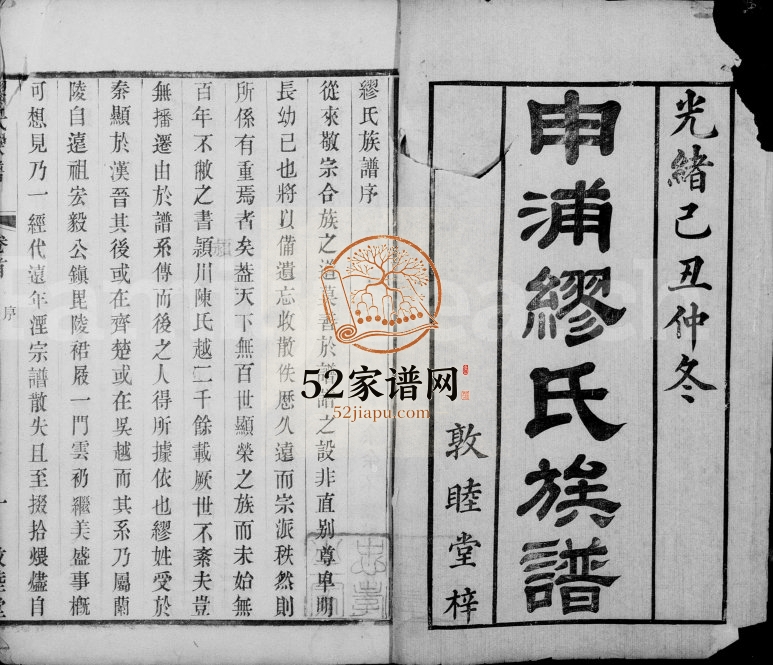 光緒己丑仲冬
申浦繆氏族譜
敦睦堂梓
繆氏族譜序
從來敬宗合族之道莫善於譜譜之設非直别尊卑明
長幼已也將以備遺忘收散佚厯久遠而宗派秩然則
所係有重焉者矣葢天下無百世顯榮之族而未始無
百年不敝之書潁川陳氏越二千餘載厥世不紊夫豈
無播遷由於譜系傳而後之人得所據依也繆姓受於
秦顯於漢晉其後或在齊楚或在吳越而其系乃屬蘭
陵自遠祖宏毅公鎮毘陵裙屐一門雲礽繼美盛事概
可想見乃一經代遠年湮宗譜散失且至掇拾煨燼自
卷首
序
一
敦睦堂
52家谱网
52jiapu.com